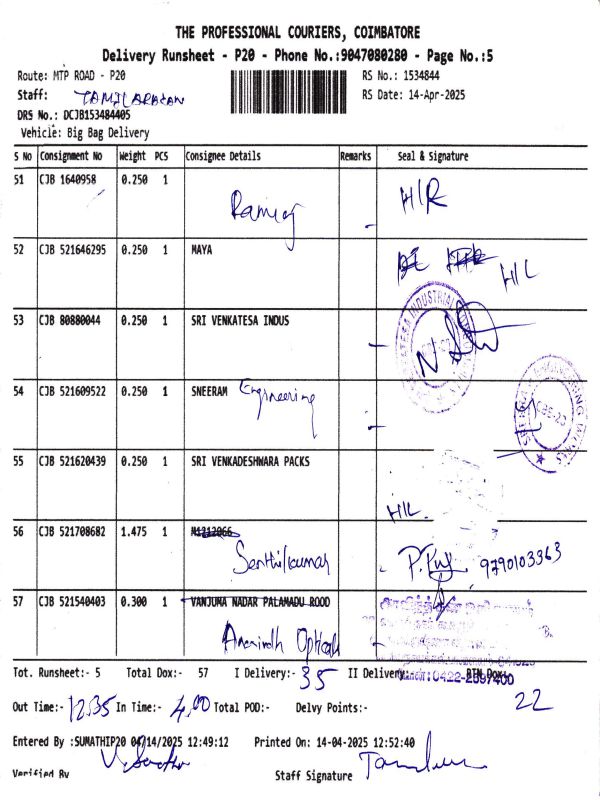 THE PROFESSIONAL COURIERS, COIMBATORE
Delivery Runsheet - P20 - Phone No.:9047080280 - Page No.:5
Route: MTP ROAD - P20 RS No.: 1534844
Staff: TAMILARASAN RS Date: 14-Apr-2025
DRS No.: DCJB153484405
Vehicle: Big Bag Delivery
S No Consignment No Weight PCS Consignee Details Remarks Seal & Signature
51 CJB 1640958 0.250 1 Ramraj H/R
52 CJB 521646295 0.250 1 MAYA H/L
53 CJB 80880044 0.250 1 SRI VENKATESA INDUS
54 CJB 521609522 0.250 1 SNEERAM Engineering
55 CJB 521620439 0.250 1 SRI VENKADESHWARA PACKS H/L
56 CJB 521708682 1.475 1 Senthilkumar 9790103363
57 CJB 521540403 0.300 1 VANJUMA NADAR PALAMADU ROOD
Optical
0422-2597400
Tot. Runsheet:- 5 Total Dox:- 57 I Delivery:- 35 II Delivery:- RTN Dox:- 22
Out Time:- 12.35 In Time:- 4.00 Total POD:- Delvy Points:-
Entered By :SUMATHIP20 04/14/2025 12:49:12 Printed On: 14-04-2025 12:52:40
Verified By Staff Signature